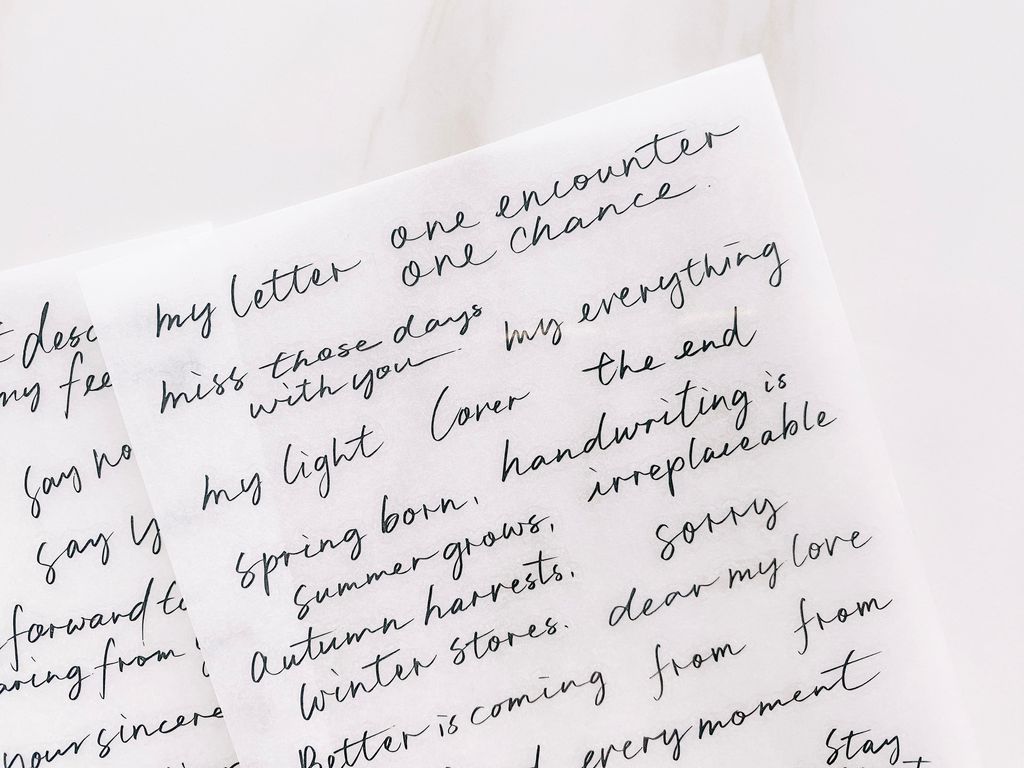 my letter
one encounter
one chance.
miss those days
with you
my everything
my light
Cover
the end
spring born,
summer grows,
autumn harvests,
winter stores.
handwriting is
irreplaceable
sorry
dear my love
Better is coming
from
from
every moment
Stay
my
say
say
forward
from
your